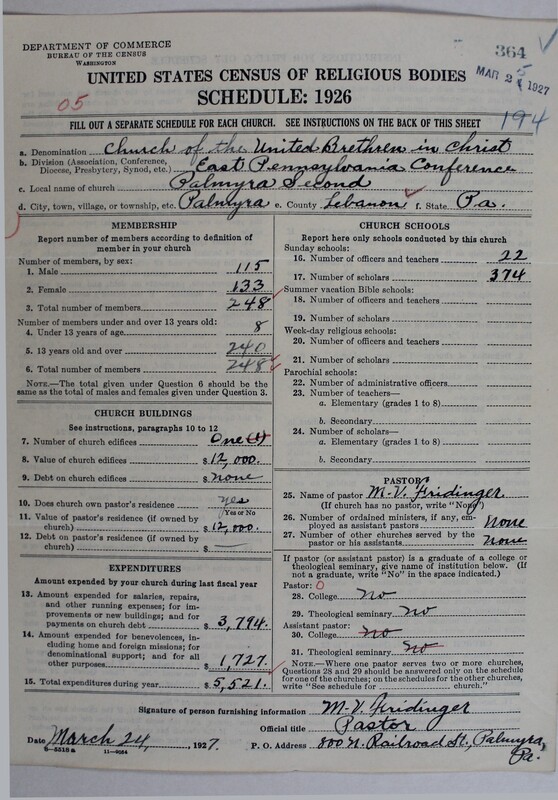 DEPARTMENT OF COMMERCE
BUREAU OF THE CENSUS
WASHINGTON
364
MAR 25 1927
UNITED STATES CENSUS OF RELIGIOUS BODIES
SCHEDULE: 1926
05
194
FILL OUT A SEPARATE SCHEDULE FOR EACH CHURCH. SEE INSTRUCTIONS ON THE BACK OF THIS SHEET
a. Denomination Church of the United Brethren in Christ
b. Division (Association, Conference, Diocese, Presbytery, Synod, etc.) East Pennsylvania Conference
c. Local name of church Palmyra Second
d. City, town, village, or township, etc. Palmyra e. County Lebanon f. State Pa.
MEMBERSHIP
Report number of members according to definition of
member in your church
Number of members, by sex:
1. Male 115
2. Female 133
3. Total number of members 248
Number of members under and over 13 years old:
4. Under 13 years of age 8
5. 13 years old and over 240
6. Total number of members 248
NOTE.—The total given under Question 6 should be
same as the total of males and females given under Question 3.
CHURCH BUILDINGS
See instructions, paragraphs 10 to 12
7. Number of church edifices One (1)
8. Value of church edifices $12,000.
9. Debt on church edifices $none
10. Does church own pastor's residence yes
(Yes or No
11. Value of pastor's residence (if owned by
church) $12,000.
12. Debt on pastor's residence (if owned by
church) $ —
EXPENDITURES
Amount expended by your church during last fiscal year
13. Amount expended for salaries, repairs,
and other running expenses; for im-
provements or new buildings; and for
payments on church debt $3,794.
14. Amount expended for benevolences, in-
cluding home and foreign missions; for
denominational support; and for all
other purposes $1,727.
15. Total expenditures during year $5,521.
CHURCH SCHOOLS
Report here only schools conducted by this church
Sunday schools:
16. Number of officers and teachers 22
17. Number of scholars 374
Summer vacation Bible schools:
18. Number of officers and teachers
19. Number of scholars
Week-day religious schools:
20. Number of officers and teachers
21. Number of scholars
Parochial schools:
22. Number of administrative officers
23. Number of teachers—
a. Elementary (grades 1 to 8)
b. Secondary
24. Number of scholars—
a. Elementary (grades 1 to 8)
b. Secondary
PASTOR
25. Name of pastor M. V. Fridinger
(If church has no pastor, write "None")
26. Number of ordained ministers, if any, em-
ployed as assistant pastors None
27. Number of other churches served by the
pastor or his assistants None
If pastor (or assistant pastor) is a graduate of a college or
theological seminary, give name of institution below. (If
not a graduate, write "No" in the space indicated.)
Pastor: 0
28. College No
29. Theological seminary No
Assistant pastor:
30. College No
31. Theological seminary No
NOTE.—Where one pastor serves two or more churches,
Questions 28 and 29 should be answered only on the schedule
for one of the churches; on the schedules for the other churches,
write "See schedule for church."
Signature of person furnishing information M. V. Fridinger
Official title Pastor
Date March 24, 1927. P. O. Address 800 N. Railroad St., Palmyra, Pa.
8—5518a 11—9264